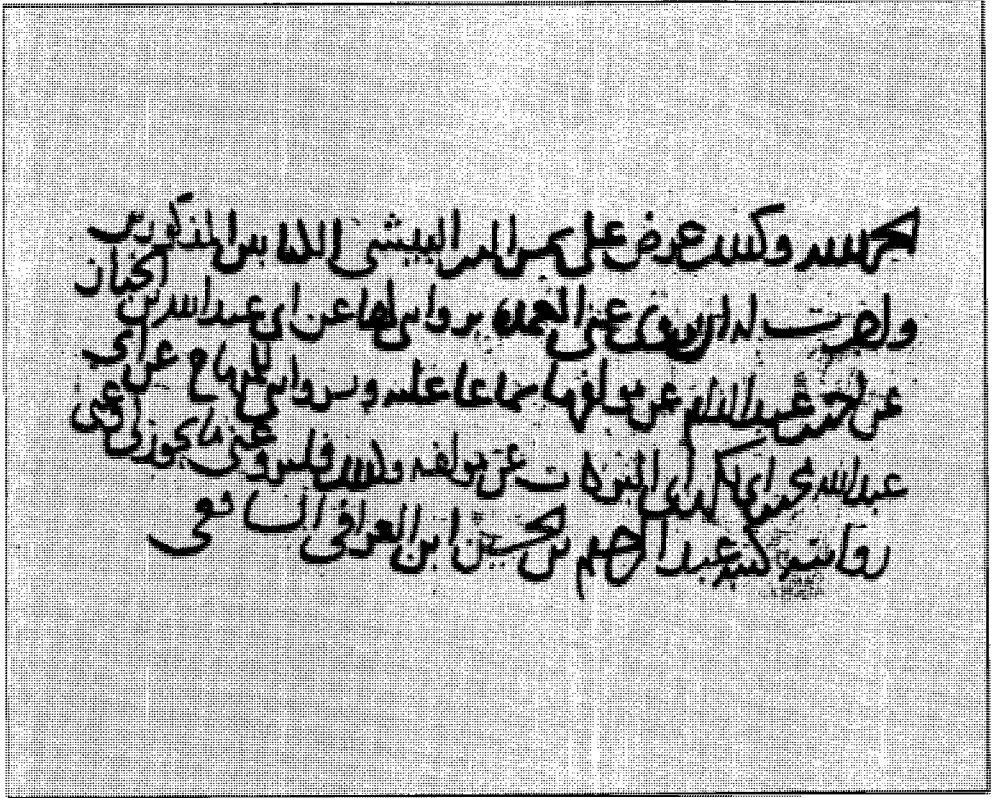 الحمد لله وكذلك عرض على شمس الدين البيشي الكتابين المذكورين
واجزت له ان يروي عني العمدة بروايتي لها عن ابي عبد الله بن الخباز
عن عبد الدايم عن مولفها سماعا عليه وبروايتي للامام عن ابي
عبد الله محمد بن ابي البركات عن مولفه وكذلك فليرو عني ما يجوز لي وعني
روايته كتبه عبد الرحيم بن الحسين ابن العراقي الشافعي